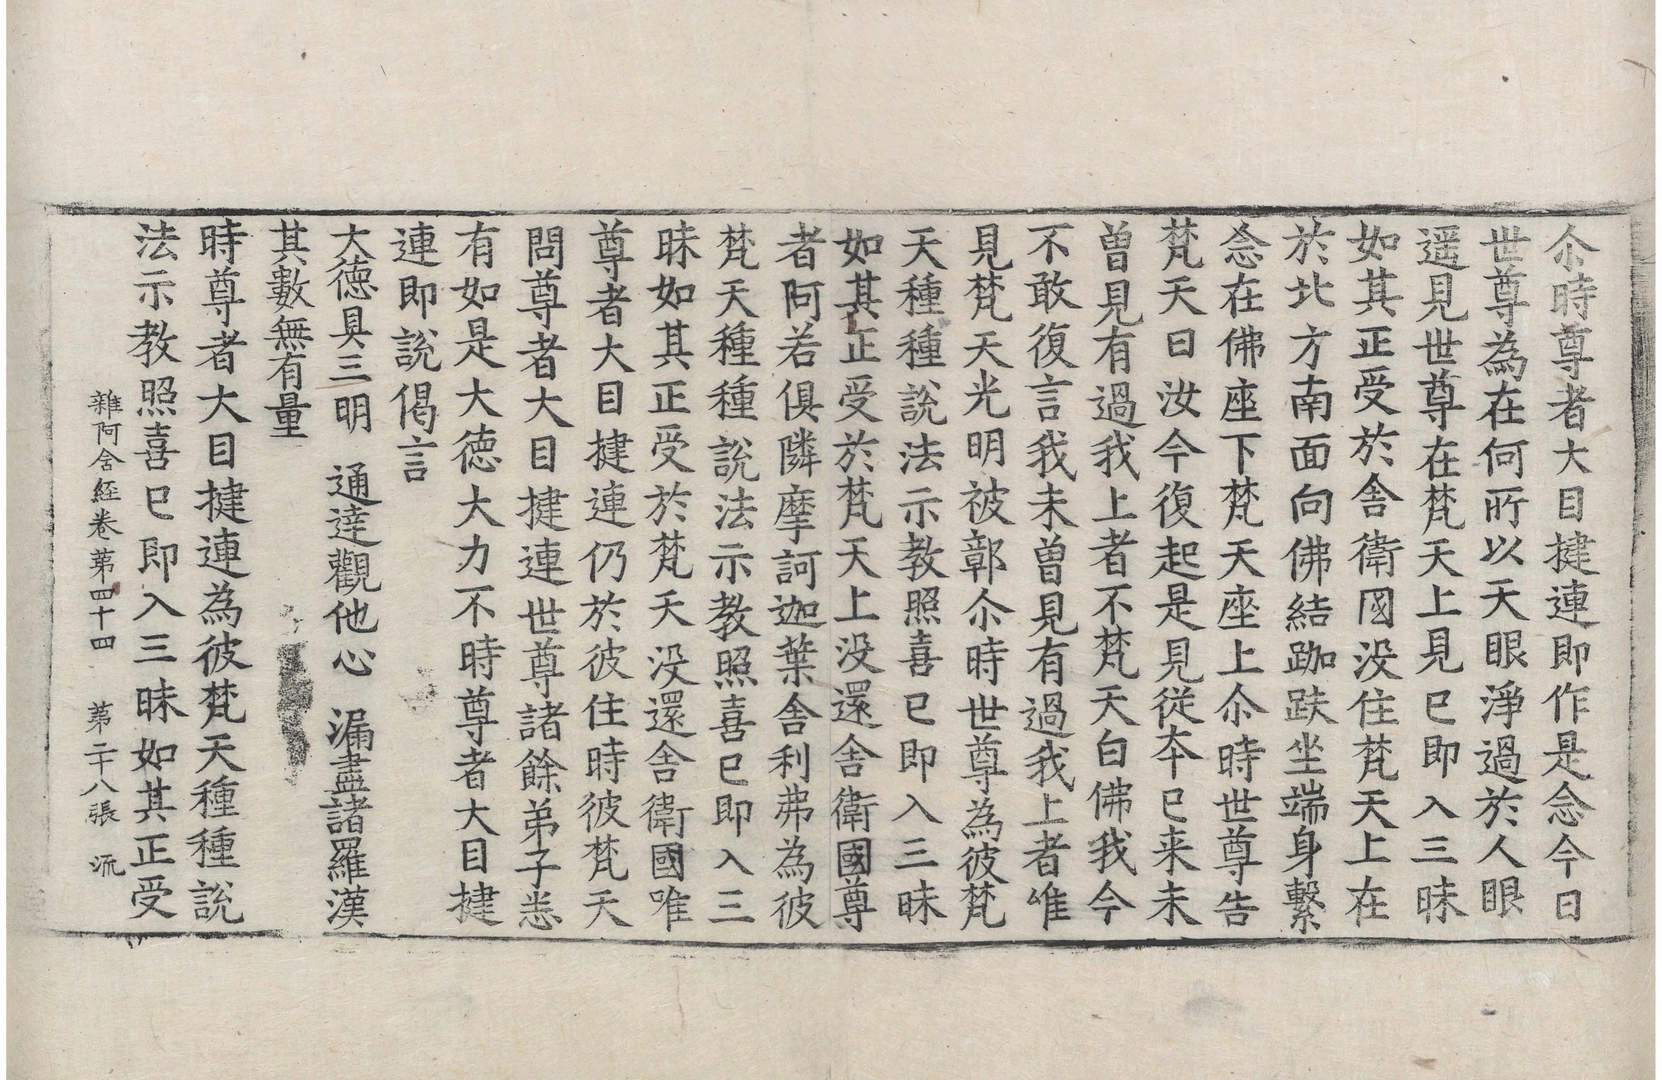 尒時尊者大目揵連即作是念今日
世尊為在何所以天眼淨過於人眼
遥見世尊在梵天上見已即入三昧
如其正受於舍衛國没住梵天上在
於北方南面向佛結跏趺坐端身繫
念在佛座下梵天座上尒時世尊告
梵天曰汝今復起是見從本已来未
曽見有過我上者不梵天白佛我今
不敢復言我未曽見有過我上者唯
見梵天光明被鄣尒時世尊為彼梵
天種種說法示教照喜已即入三昧
如其正受於梵天上没還舍衛國尊
者阿若俱隣摩訶迦葉舍利弗為彼
梵天種種說法示教照喜已即入三
昧如其正受於梵天没還舍衛國唯
尊者大目揵連仍於彼住時彼梵天
問尊者大目揵連世尊諸餘弟子悉
有如是大德大力不時尊者大目揵
連即說偈言
大德具三明　通達觀他心　漏盡諸羅漢
其數無有量
時尊者大目揵連為彼梵天種種說
法示教照喜已即入三昧如其正受
雜阿含経卷苐四十四　苐二十八張　流